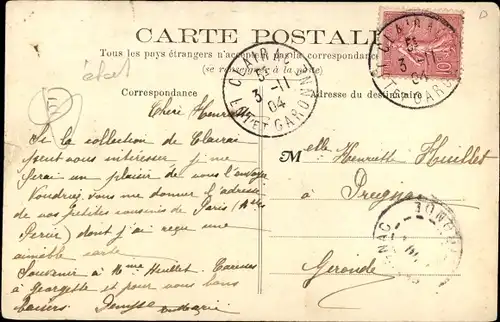 CARTE POSTALE
Tous les pays étrangers n'acceptent pas la correspondance
(se renseigner à la poste)
Correspondance
Adresse du destinataire
CLAIRAC
3 -11
04
LOT ET GARONNE
CLAIRAC
3 -11
04
LOT ET GARONNE
10
état
Chère Henriette
Si la collection de Clairac
peut vous intéresser, je me
ferai un plaisir de vous l'envoyer
Voudriez-vous me donner l'adresse
de vos petites cousines de Paris
dont j'ai reçu une
aimable carte
Souvenir à Mme Huillet. Caresses
à Georgette et pour vous bons
baisers
Melle Henriette Huillet
à
Preignac
Gironde
GIRONDE